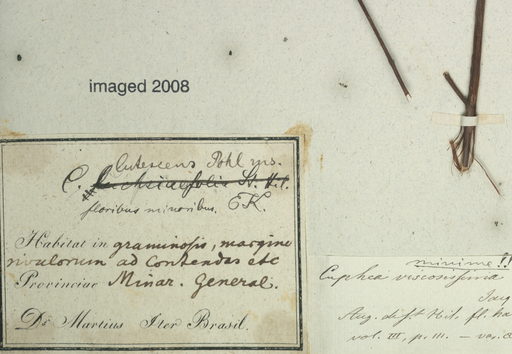 imaged 2008
lutescens Pohl ms.
C. fuchsiaefolia St. Hil.
floribus minoribus. EK.
Habitat in graminosis, margine
rivulorum ad Contendas etc
Provinciae Minar. General.
Dr Martius Iter Brasil.
minime!!
Cuphea viscosissima
Jacq
Aug. di St Hil. fl.
vol. III, p. 111. – var.